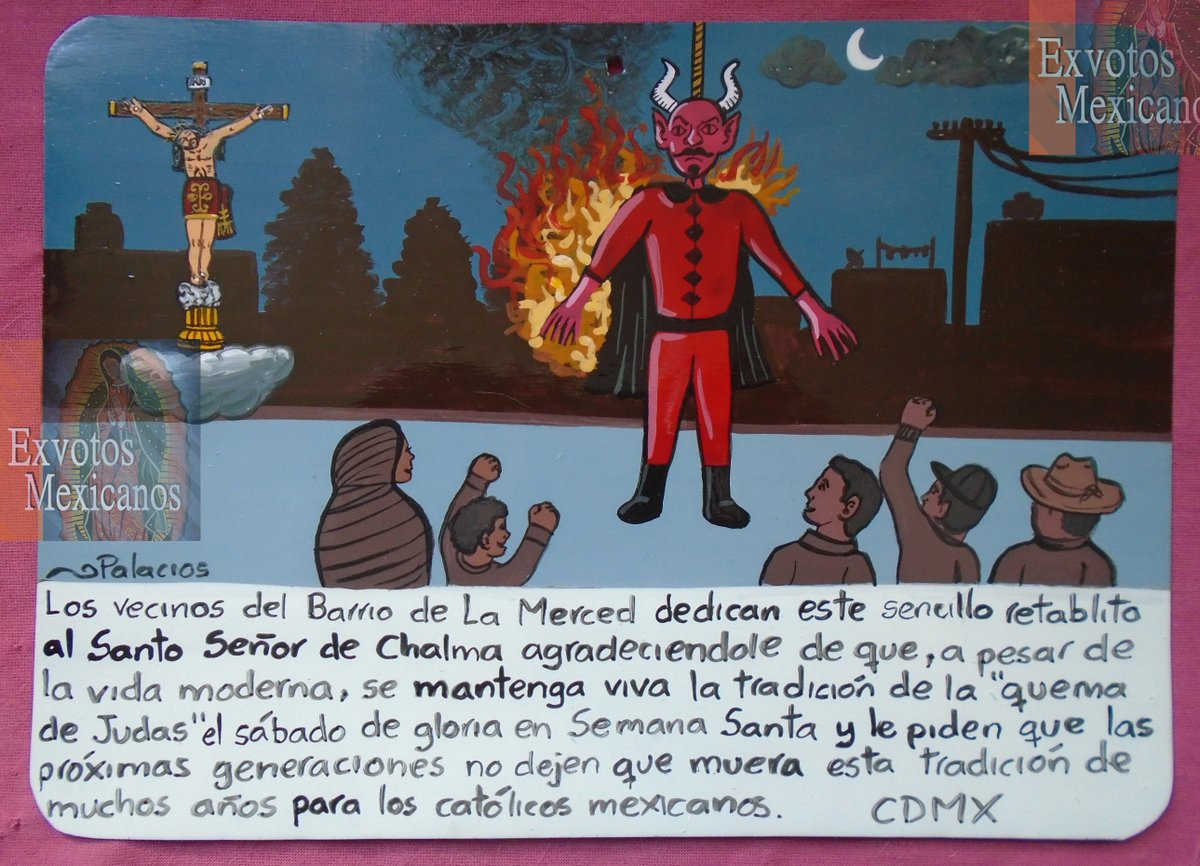 INRI
Exvotos
Mexicano
Exvotos
Mexicanos
Palacios
Los vecinos del Barrio de La Merced dedican este sencillo retablito
al Santo Señor de Chalma agradeciendole de que, a pesar de
la vida moderna, se mantenga viva la tradición de la "quema
de Judas" el sábado de gloria en Semana Santa y le piden que las
próximas generaciones no dejen que muera esta tradición de
muchos años para los católicos mexicanos. CDMX